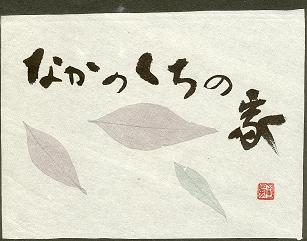 なかのくちの家